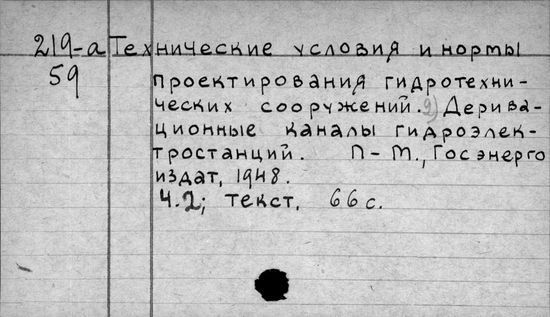 219-а Технические условия и нормы
59 проектирования гидротехни-
ческих сооружений. 9) Дерива-
ционные каналы гидроэлек-
тростанций. Л-М., Госэнерго
издат, 1948.
Ч.2; текст, 66 с.